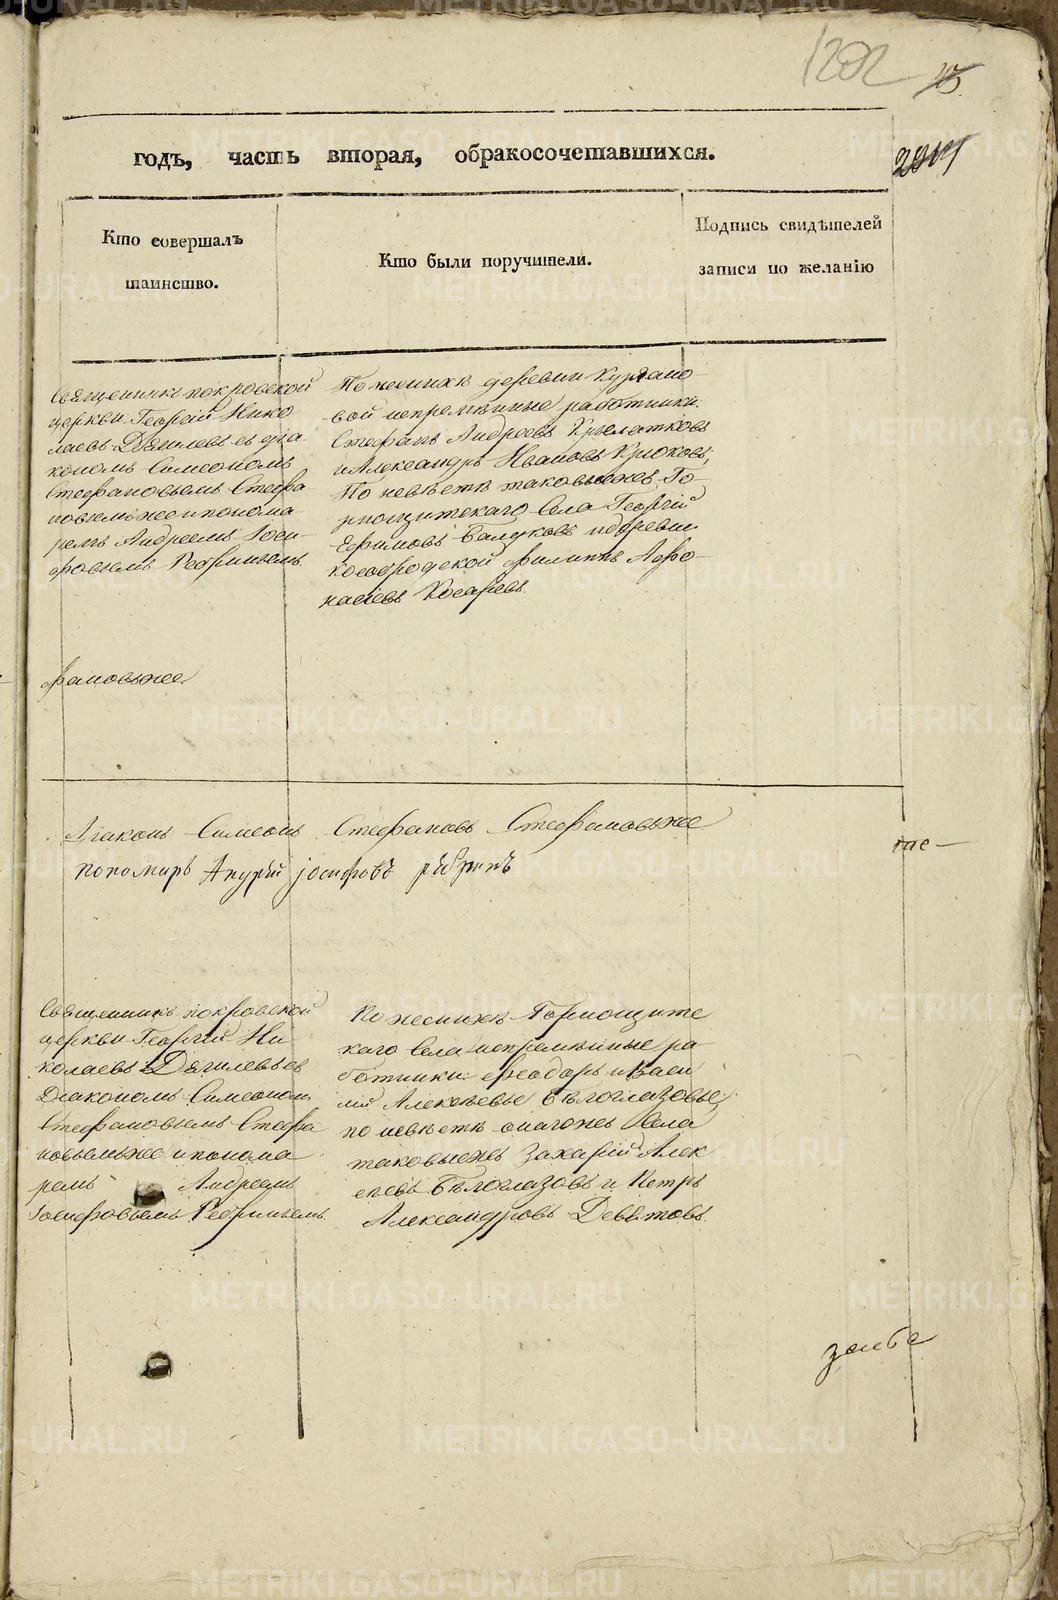 1202
годъ, часть вторая, обракосочетавшихся.
Кто совершалъ
таинство.
Кто были поручители.
Подпись свидѣтелей
записи по желанію
Священникъ покровской
церкви Георгій Нико
лаевъ Дягилевъ съ дья
кономъ Симеономъ
Стефановымъ Стефа
новымъ же и понома
ремъ Андреемъ Іоси
фовымъ Ребринымъ
По женихѣ деревни
вой непремѣнные работники
Стефанъ Андреевъ Крылатковъ
и Александръ Ивановъ Крюковъ;
По невѣстѣ таковые же Го
рнощитскаго Села Георгій
Ефимовъ Балуковъ и деревни
кособродской Филиппъ Афо
насіевъ Косаревъ.
фановъ же
Діаконъ Симеонъ Стефановъ Стефановъ же
пономарь Андрей Іосифовъ
Священникъ покровской
церкви Георгій Ни
колаевъ Дягилевъ съ
Діакономъ Симеономъ
Стефановымъ Стефа
новымъ же и понома
ремъ Андреемъ
Іосифовымъ Ребринымъ
По женихѣ Горнощитс
каго Села непремѣнные ра
ботники Феодоръ и Васи
лій Алексѣевы Бѣлоглазовы;
по невѣстѣ онагожъ Села
таковые же Захарій Алек
сѣевъ Бѣлоглазовъ и Петръ
Александровъ Девятовъ.
METRIKI.GASO-URAL.RU